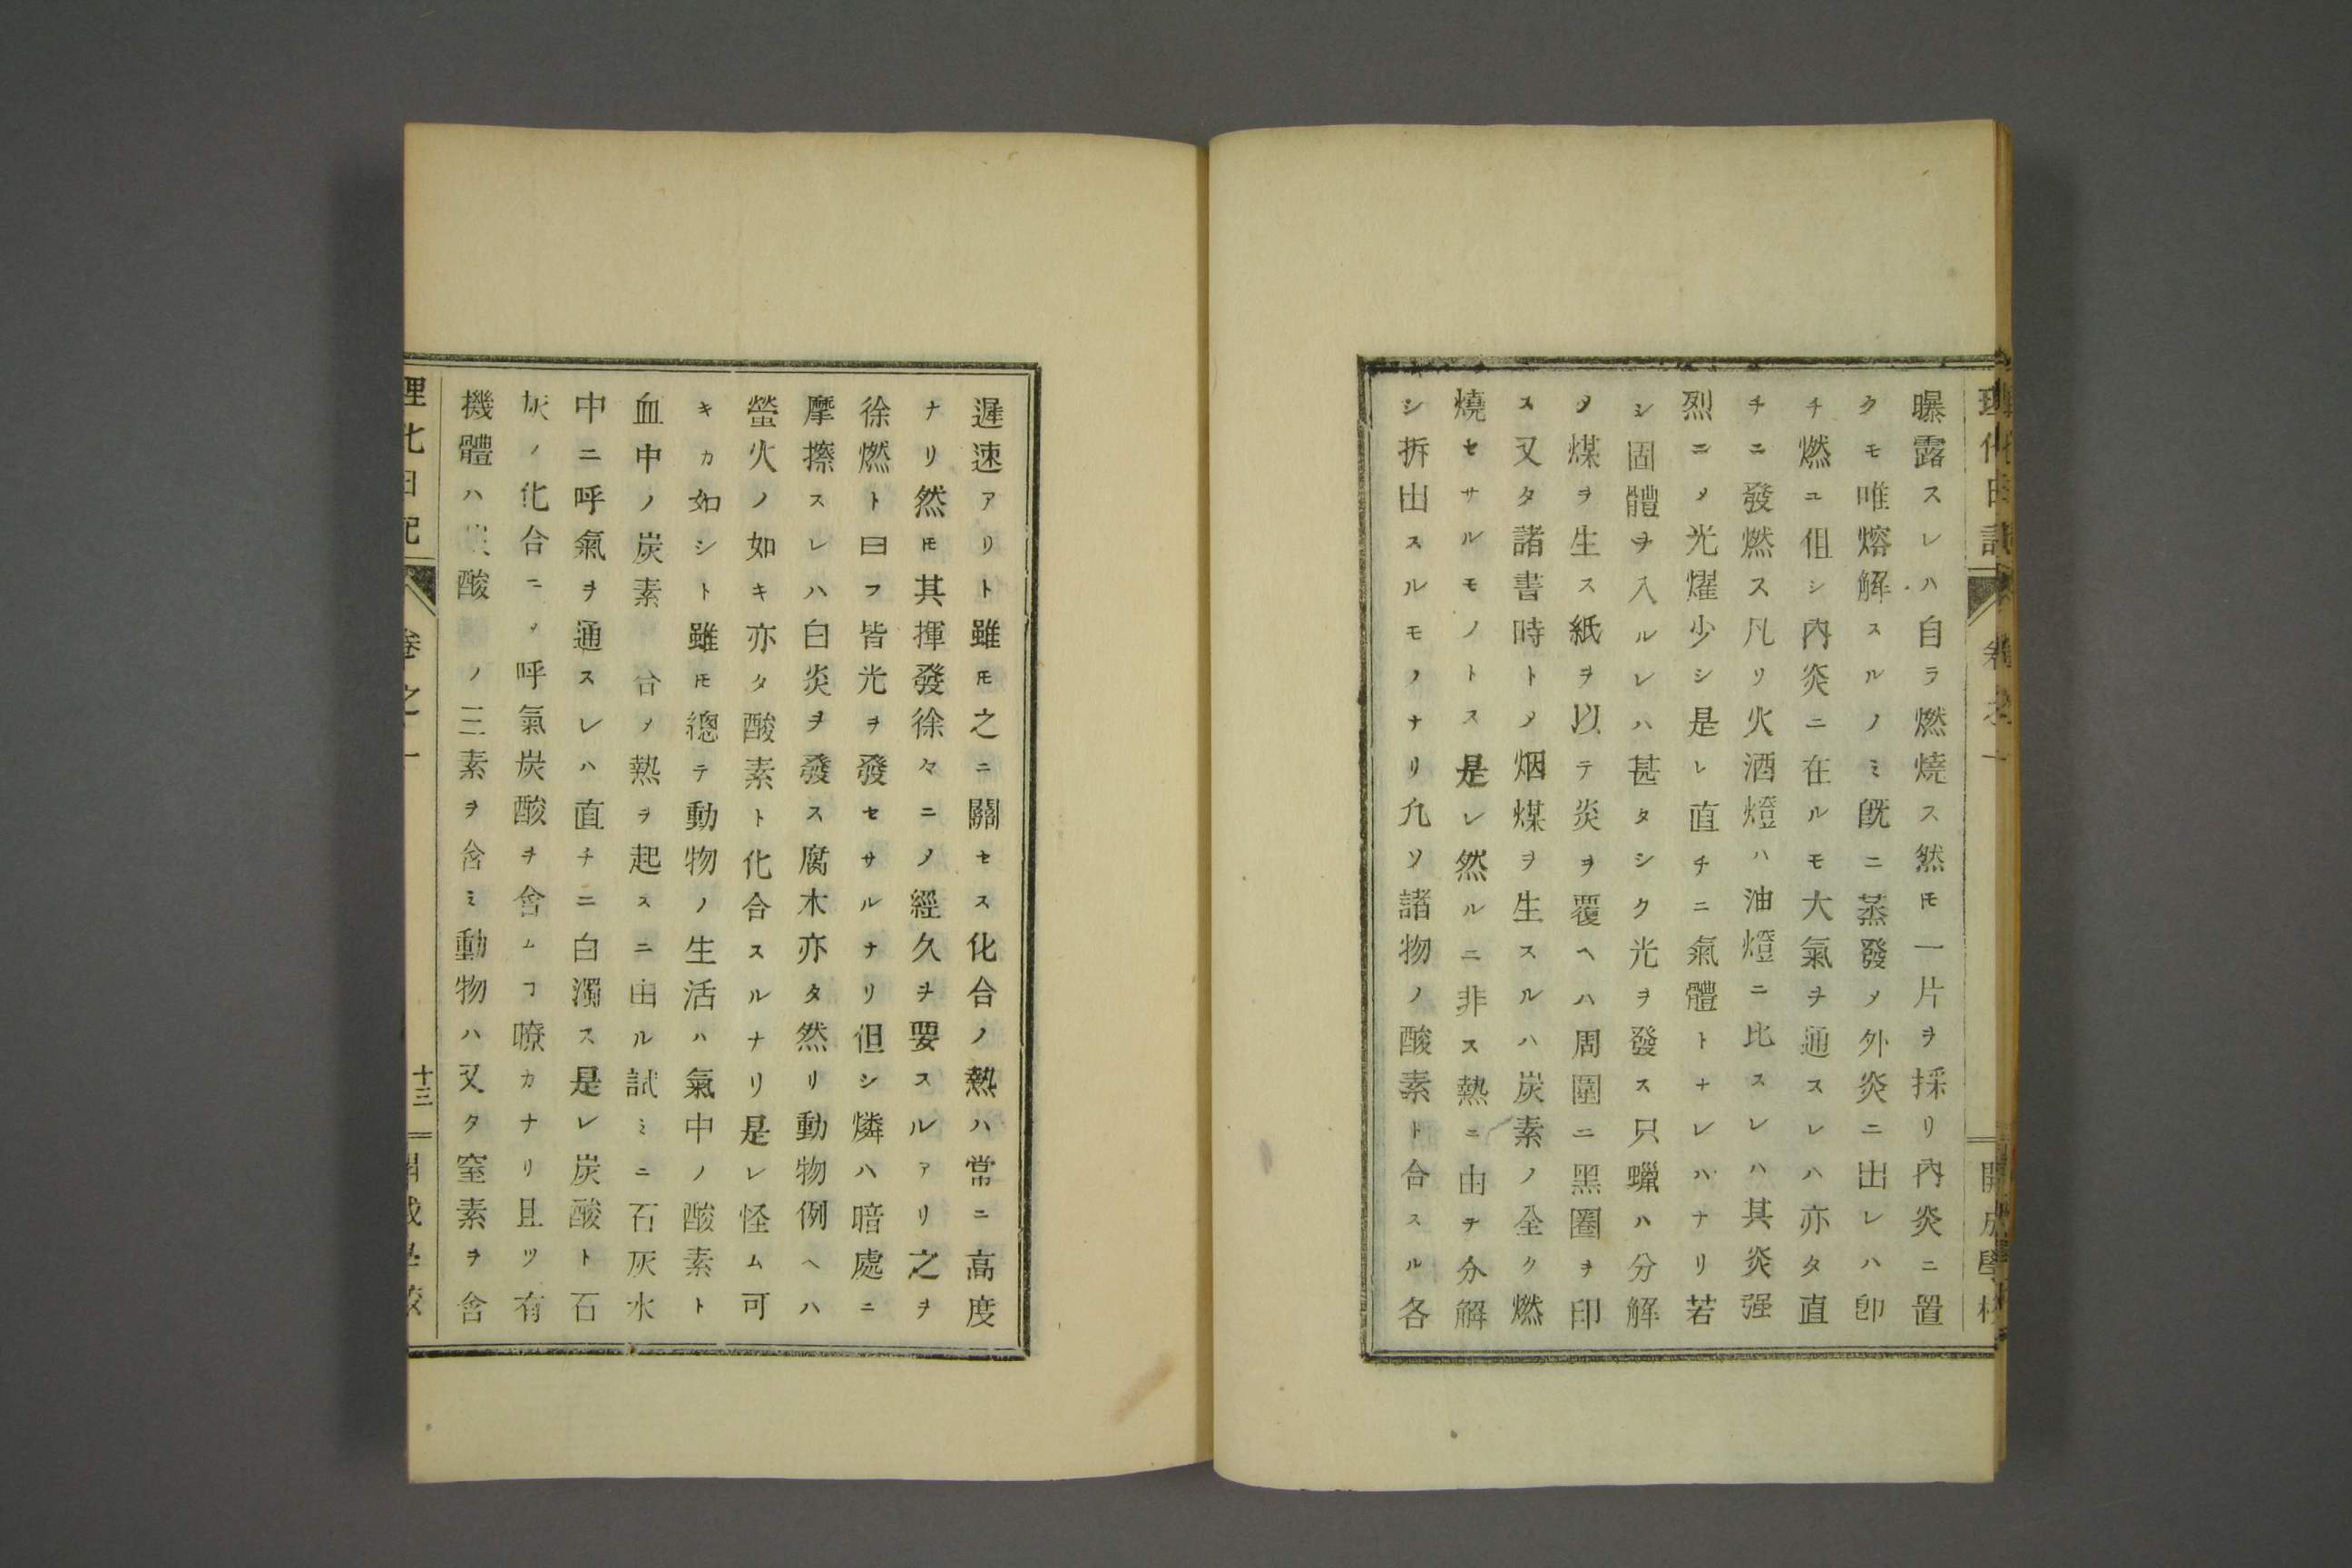 理化日記 卷之一 開成學校
曝露スレハ自ラ燃燒ス然𪜈一片ヲ採リ內炎ニ置
クモ唯熔解スルノミ既ニ蒸發〆外炎ニ出レハ卽
チ燃ユ但シ內炎ニ在ルモ大氣ヲ通スレハ亦タ直
チニ發燃ス凡リ火酒燈ハ油燈ニ比スレハ其炎强
烈ニ〆光燿少シ是レ直チニ氣體トナレハナリ若
シ固體ヲ入ルレハ甚タシク光ヲ發ス只蠟ハ分解
〆煤ヲ生ス紙ヲ以テ炎ヲ覆ヘハ周圍ニ黑圈ヲ印
ス又タ諸書時ト〆烟煤ヲ生スルハ炭素ノ全ク燃
燒セサルモノトス是レ然ルニ非ス熱ニ由テ分解
シ拆出スルモノナリ凢ソ諸物ノ酸素ト合スル各
遲速アリト雖𪜈之ニ關セス化合ノ熱ハ常ニ高度
ナリ然𪜈其揮發徐々ニ〆經久ヲ要スルアリ之ヲ
徐燃ト曰フ皆光ヲ發セサルナリ但シ燐ハ暗處ニ
摩擦スレハ白炎ヲ發ス腐木亦タ然リ動物例ヘハ
螢火ノ如キ亦タ酸素ト化合スルナリ是レ怪ム可
キカ如シト雖𪜈總テ動物ノ生活ハ氣中ノ酸素ト
血中ノ炭素合〆熱ヲ起スニ由ル試ミニ石灰水
中ニ呼氣ヲ通スレハ直チニ白濁ス是レ炭酸ト石
灰ノ化合ニ〆呼氣炭酸ヲ含ムヿ瞭カナリ且ツ有
機體ハ酸ノ三素ヲ含ミ動物ハ又タ窒素ヲ含
理化日記 卷之一 十三 開成學校